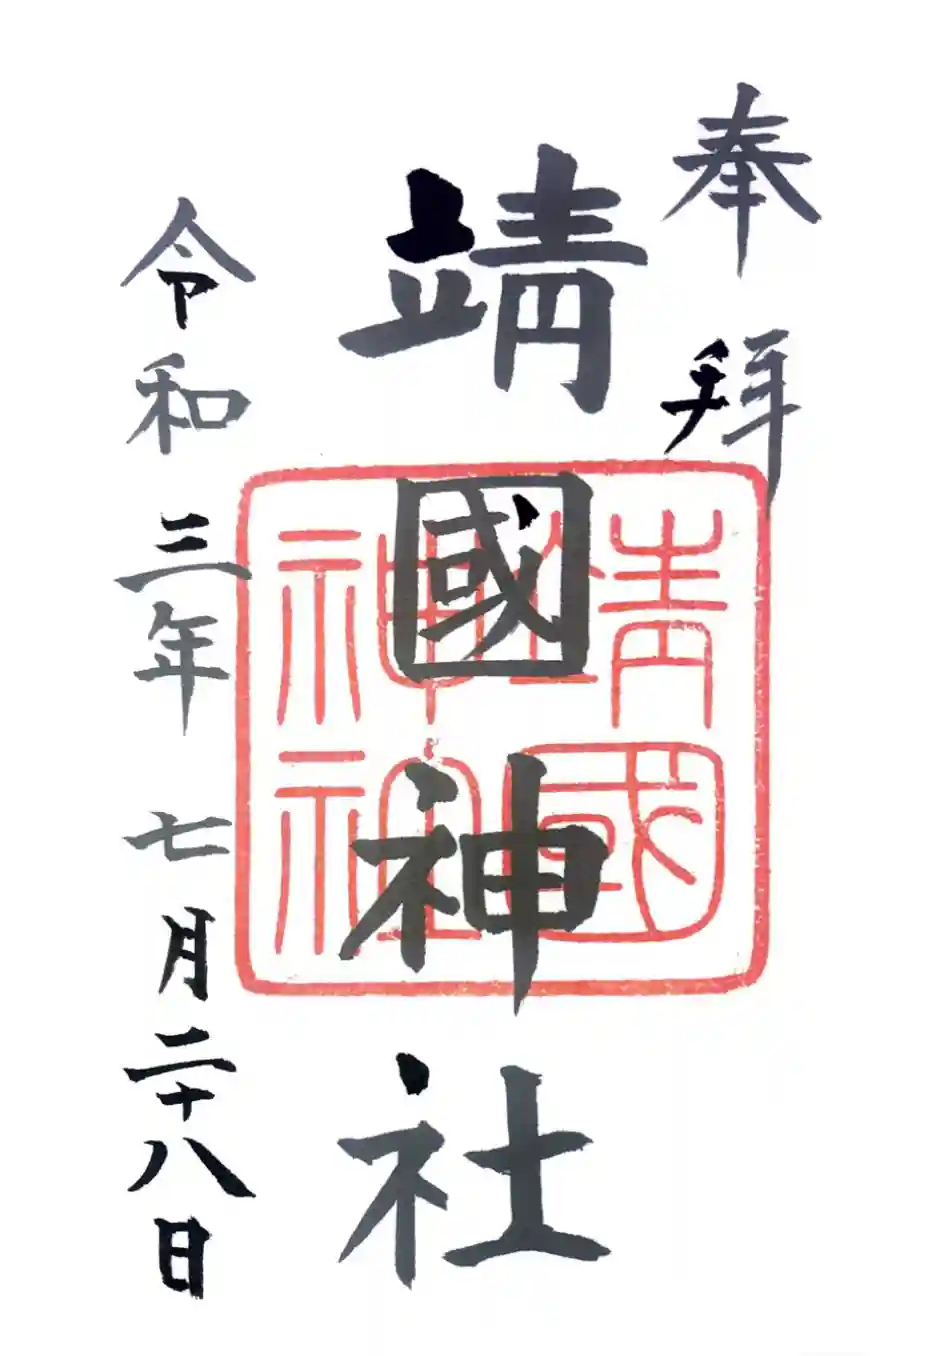 奉拜
靖國神社
靖國
神社
令和三年七月二十八日